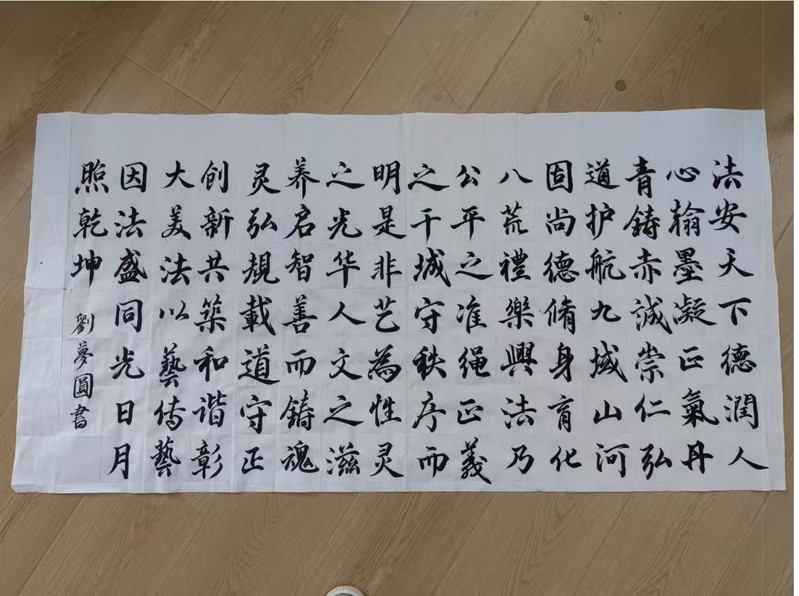 法安天下德潤人
心翰墨凝正氣丹
青鋳赤誠崇仁弘
道护航九域山河
固尚德脩身育化
八荒禮樂興法乃
公平之准绳正義
之干城守秩序而
明是非艺為性灵
之光华人文之滋
养启智善而鋳魂
灵弘規載道守正
创新共築和谐彰
大美法以藝传藝
因法盛同光日月
照乾坤
劉夢圓書